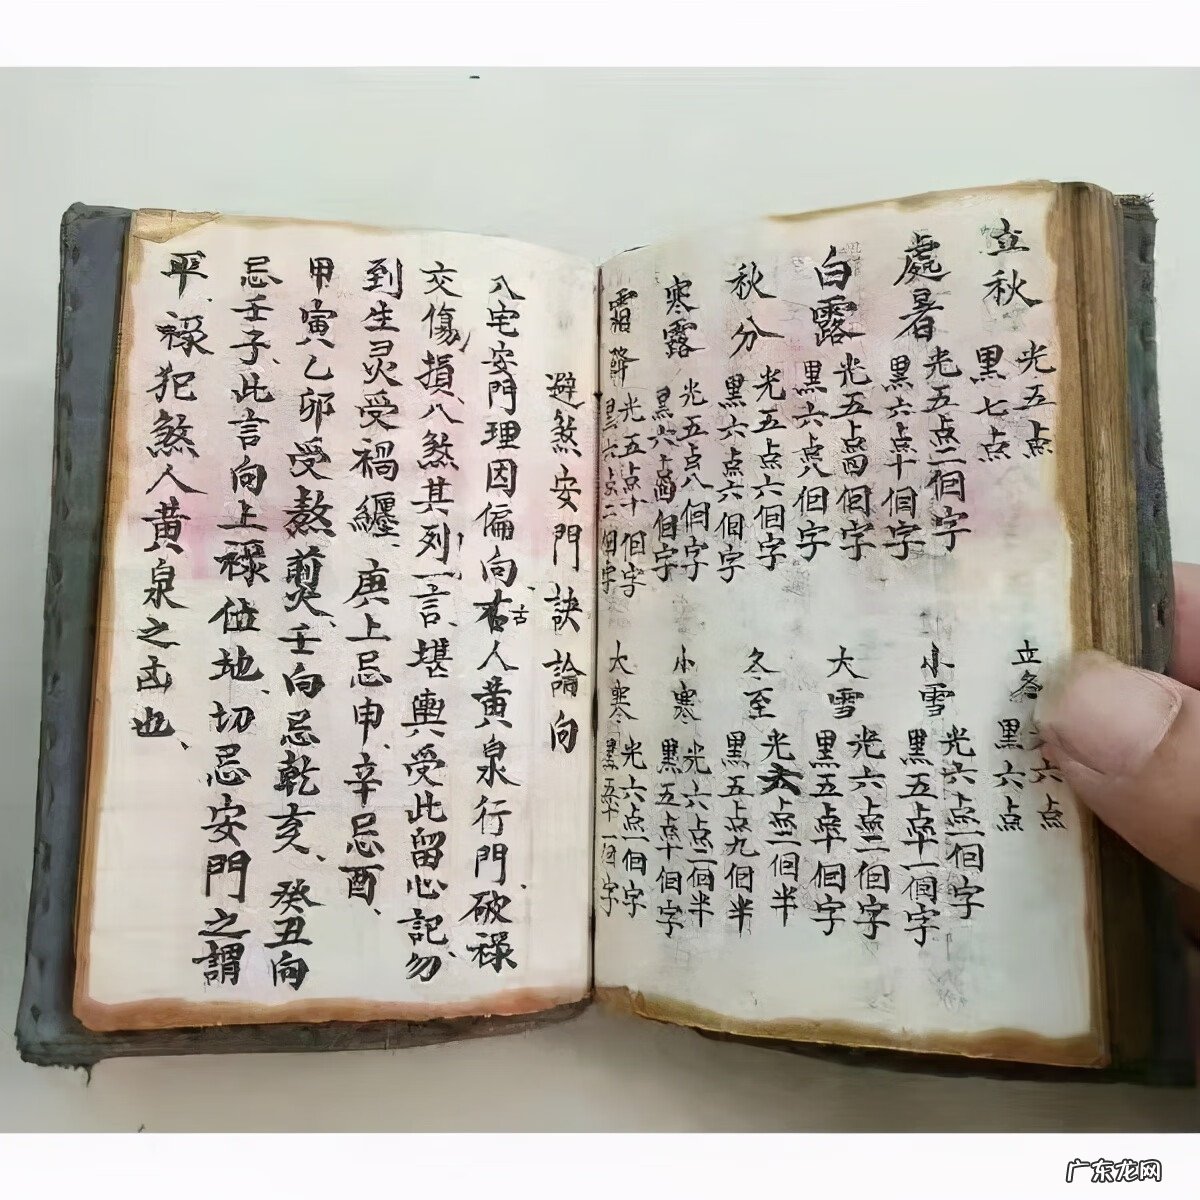 立秋
光五点
黑七点
處暑
光五点二個字
黑六点十個字
白露
光五点四個字
黑六点八個字
秋分
光五点六個字
黑六点六個字
寒露
光五点八個字
黑六点四個字
霜降
光五点十個字
黑六点二個字
立冬
六点
黑六点
小雪
光六点一個字
黑五点十一個字
大雪
光六点二個字
黑五点十個字
冬至
光六点二個半
黑五点九個半
小寒
光六点二個半
黑五点十個字
大寒
光六点一個字
黑五点十一個字
避煞安門訣論向
八宅安門理因偏向右人黃泉行門、破祿
古
交傷損、八煞其列一言、堪輿受此留心記、勿
到生灵受禍纒、庚上忌申、辛忌酉、
甲寅乙卯受熬煎、壬向忌乾亥、癸丑向
忌壬子、此言向上祿位地、切忌安門之謂
平、祿犯煞人黃泉之凶也、
广东龙网